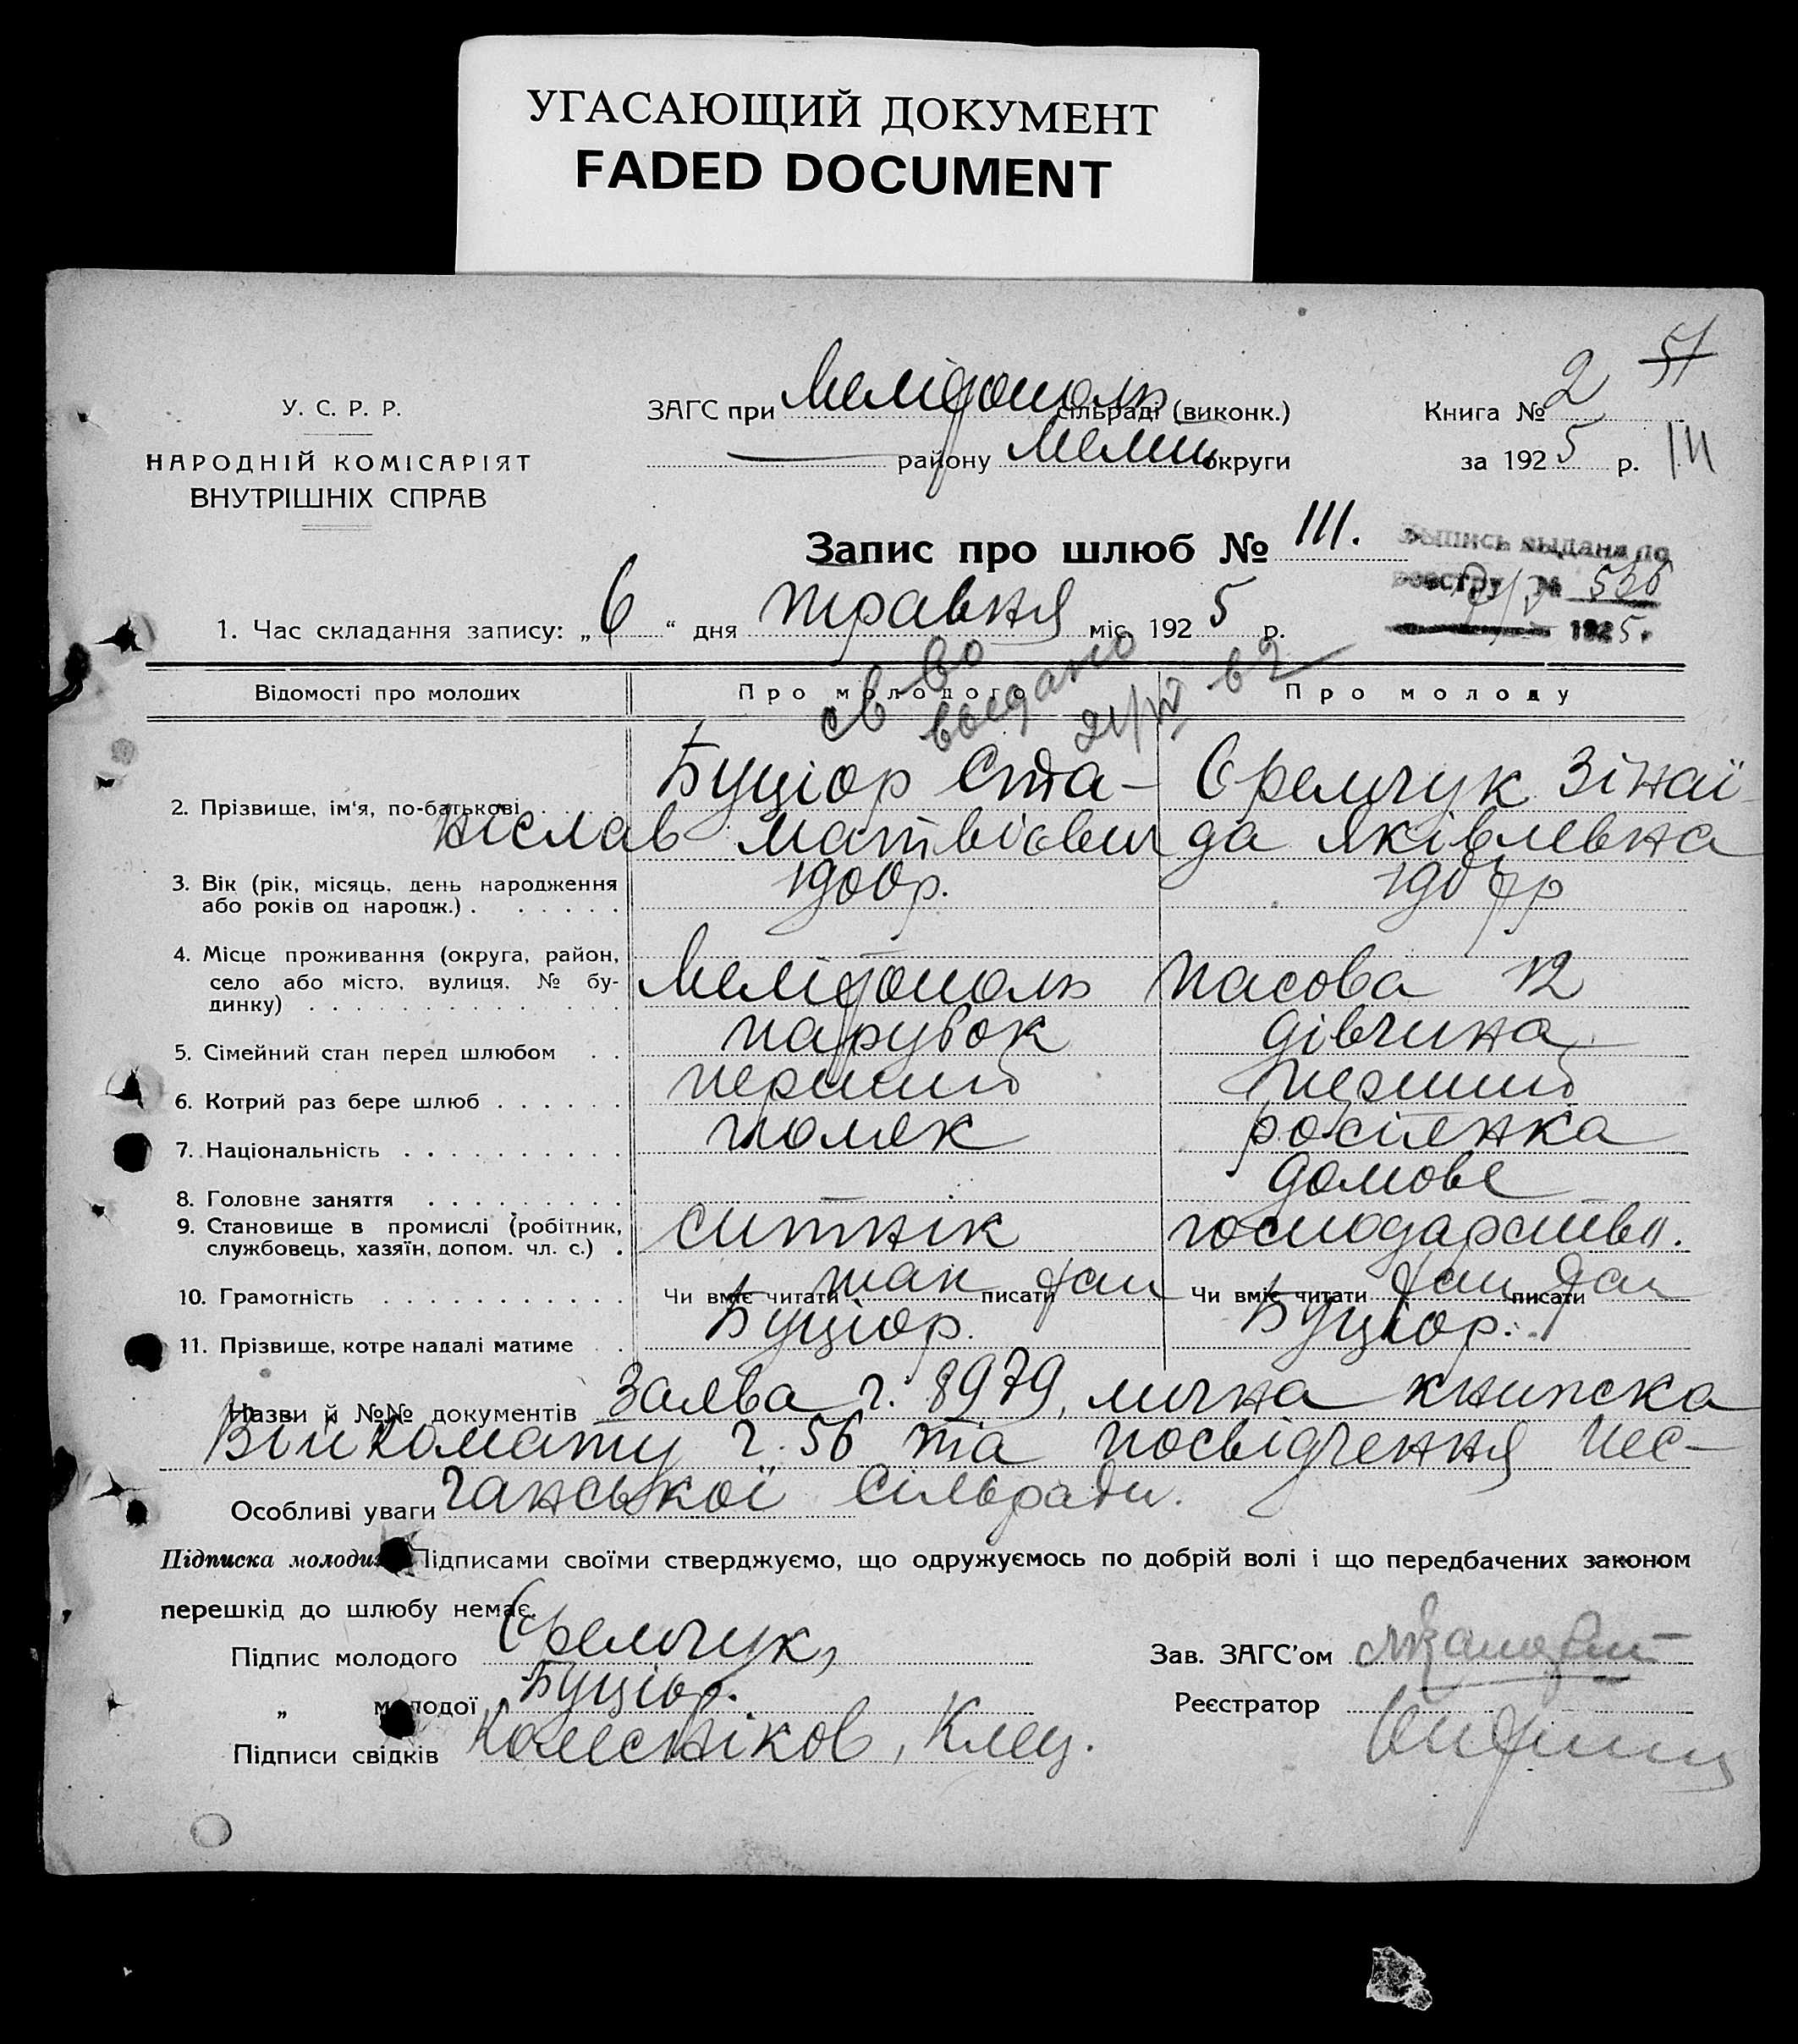 УГАСАЮЩИЙ ДОКУМЕНТ
FADED DOCUMENT
51
У. С. Р. Р.
НАРОДНІЙ КОМІСАРІЯТ
ВНУТРІШНІХ СПРАВ
ЗАГС при Мелітополь сільраді (виконк.)
району Меліт округи
Книга № 2
за 1925 р.
111
Запис про шлюб № 111.
Выпись выдана по
реестру № 526
1925.
1. Час складання запису: „6“ дня травня міс. 1925 р.
Відомості про молодих
Про молодого
Про молоду
св во
выдано 21/IV 62
2. Прізвище, ім'я, по-батькові
Буціор Ста-
ніслав Матвієвич
Єремчук Зінаї-
да Яківлевна
3. Вік (рік, місяць, день народження
або років од народж.)
1900р.
4. Місце проживання (округа, район,
село або місто, вулиця, № бу-
динку)
Мелітополь
12
5. Сімейний стан перед шлюбом
парубок
дівчина
6. Котрий раз бере шлюб
перший
перший
7. Національність
поляк
росіянка
8. Головне заняття
домове
9. Становище в промислі (робітник,
службовець, хазяїн, допом. чл. с.)
ситнік
господарств.
10. Грамотність
Чи вміє читати так писати так
Чи вміє читати так писати так
11. Прізвище, котре надалі матиме
Буціор.
Буціор.
Назви й №№ документів Заява ч. 8979, лична книжка
Війкомату ч. 56 та посвідчення Пес-
Особливі уваги чанської Сільради.
Підписка молодих Підписами своїми стверджуємо, що одружуємось по добрій волі і що передбачених законом
перешкід до шлюбу немає.
Підпис молодого Єремчук,
„ молодої Буціор.
Підписи свідків Колесніков, Клец.
Зав. ЗАГС'ом
Реєстратор